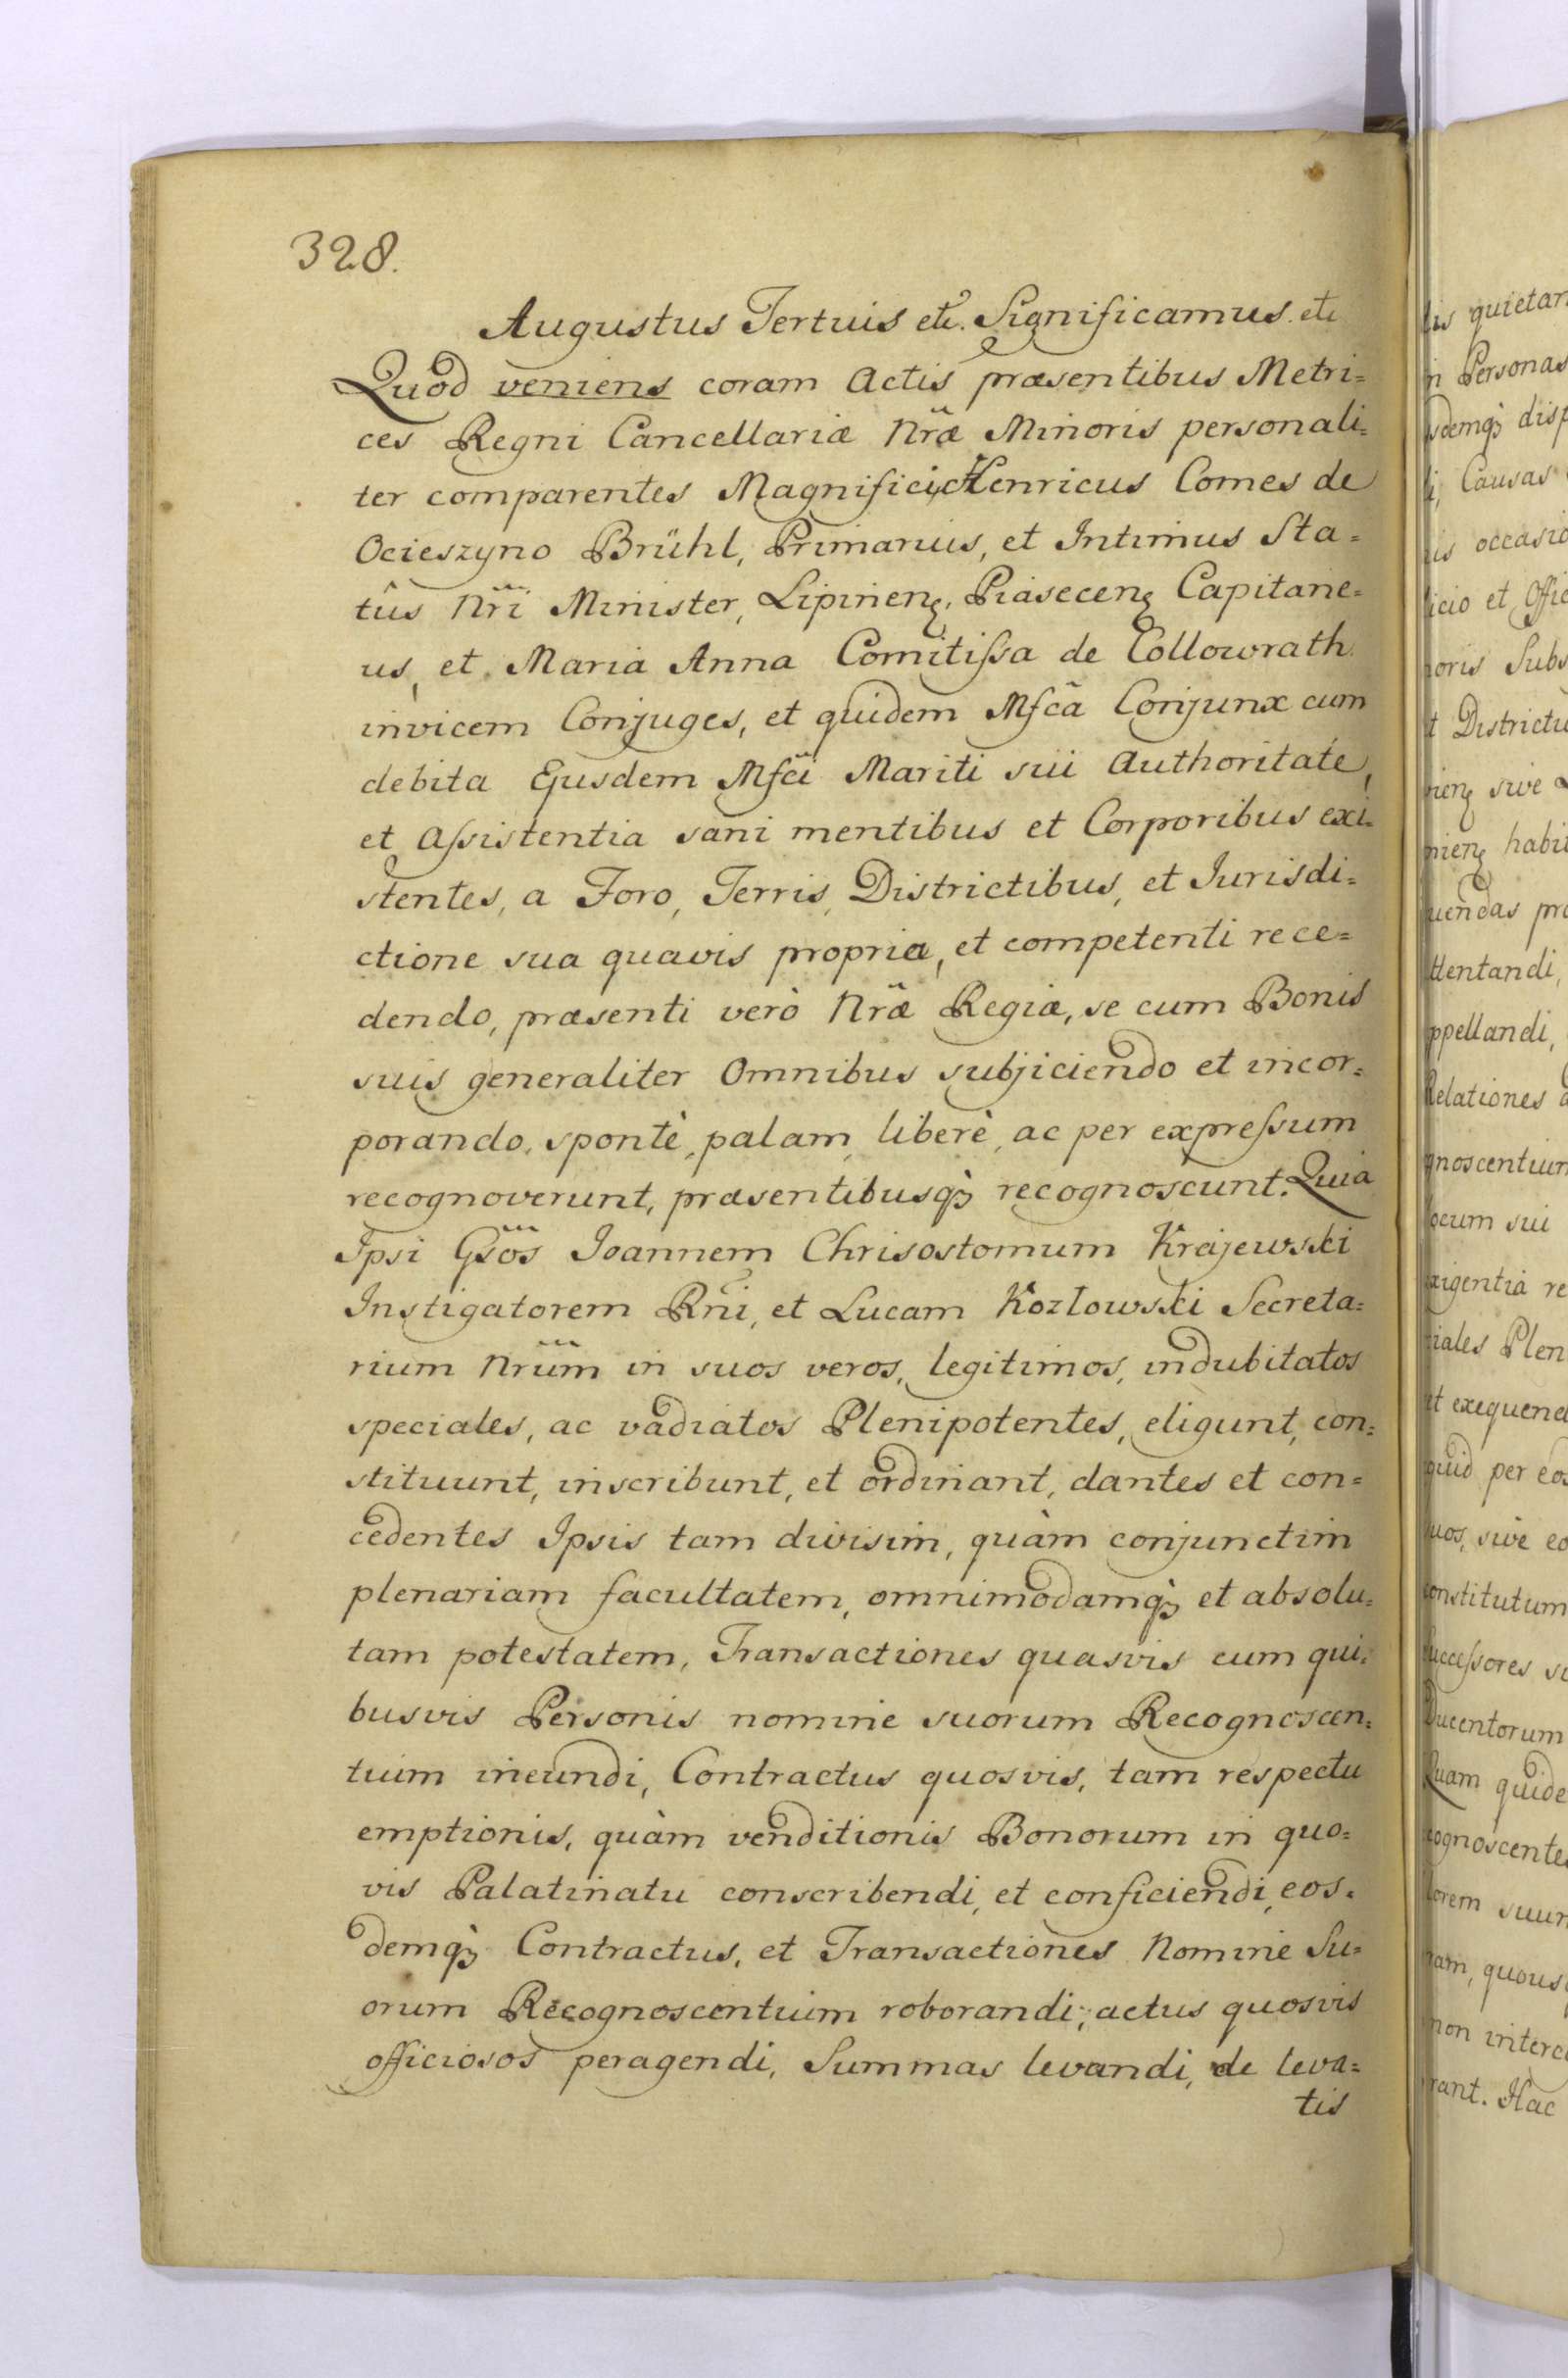 328.
Augustus Tertuis etc. Significamus etc
Quod veniens coram Actis præsentibus Metri=
ces Regni Cancellariæ Nræ Minoris personali=
ter comparentes Magnifici, Henricus Comes de
Ocieszyno Brühl, Primarius, et Intimus Sta=
tûs Nri Minister, Lipinenς, Piasecenς Capitane=
us, et Maria Anna Comitiſsa de Collowrath
invicem Conjuges, et quidem Mfca Conjunx cum
debita Ejusdem Mfci Mariti sui Authoritate,
et Aſsistentia sani mentibus et Corporibus exi=
stentes, a Foro, Terris, Districtibus, et Iurisdi=
ctione sua quavis propria, et competenti rece=
dendo, præsenti verò Nræ Regiæ, se cum Bonis
suis generaliter Omnibus subjiciendo et incor=
porando, spontè, palam, liberè, ac per expreſsum
recognoverunt, præsentibusqȝ recognoscunt. Quia
Ipsi Gsos Joannem Chrisostomum Krajewski
Instigatorem Rni, et Lucam Kozłowski Secreta=
rium Nrum in suos veros, legitimos, indubitatos
speciales, ac vadiatos Plenipotentes, eligunt, con=
stituunt, inscribunt, et ordinant, dantes et con=
cedentes Ipsis tam divisim, quàm conjunctim
plenariam facultatem, omnimodamqȝ et absolu=
tam potestatem, Transactiones quasvis cum qui=
busvis Personis nomine suorum Recognoscen=
tium ineundi, Contractus quosvis, tam respectu
emptionis, quàm venditionis Bonorum in quo=
vis Palatinatu conscribendi, et conficiendi, eos=
demqȝ Contractus, et Transactiones Nomine Su=
orum Recognoscentium roborandi, actus quosvis
officiosos peragendi, Summas levandi, de leva=
tis
lis quietan
in Personas
sdemqȝ disp
i, Causas
is occasio
icio et Offic
noris Subs
t Districtu
nenς sive
nienς habi
uendas pro
ttentandi,
ppellandi,
Relationes
gnoscentium
ocum sui
xigentia re
iales Plen
et exequend
quid per eos
uos, sive eo
constitutum
uccessores su
Ducentorum
Quam quide
cognoscentes
orem suum
nam, quousq
non interce
rant. Hac